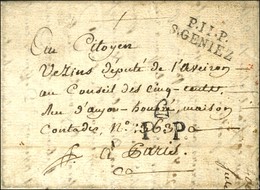 P.II.P.
S. GENIEZ
Au Citoyen
Vezins député de l'aveiron
au Conseil des cinq-cents,
Rue d'anjou-honoré, maison
Contades, N°: 963.
P P
à Paris.